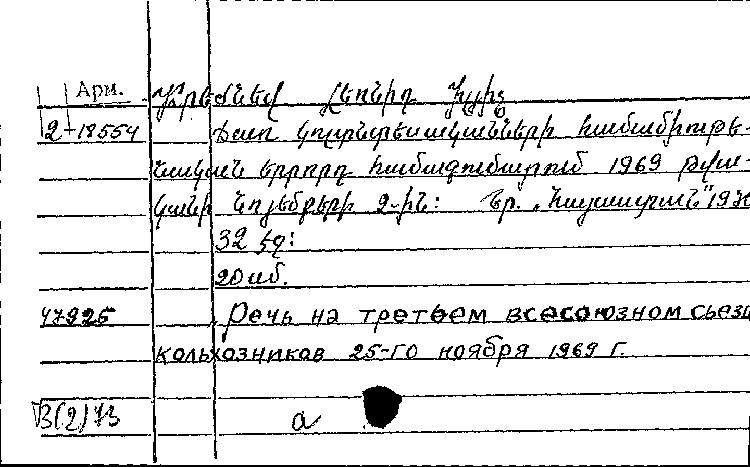 Арм. Բրեժնև Լեոնիդ Իլյիչ
2-18554 Ճառ կոլտնտեսականների համամիութե-
նական երրորդ համագումարում 1969 թվա-
կանի նոյեմբերի 2-ին: Եր. „Հայաստան" 197
32 էջ:
20 սմ.
47925 Речь на третьем всесоюзном сьезд
колхозников 25-го ноября 1969 г.
В(2)73 а